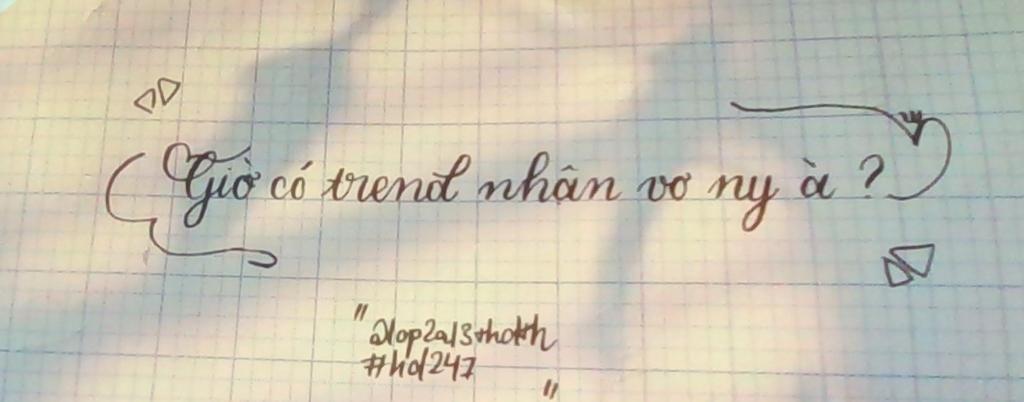 Giờ có trend nhận vơ ny à ?
"@lop2a13thotth
#hd247
"